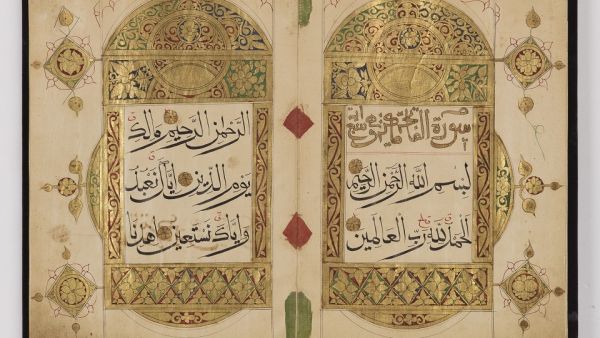 سورة الفاتحة
بسم الله الرحمن الرحيم
الحمد لله رب العالمين
الرحمن الرحيم مالك
يوم الدين اياك نعبد
واياك نستعين اهدنا